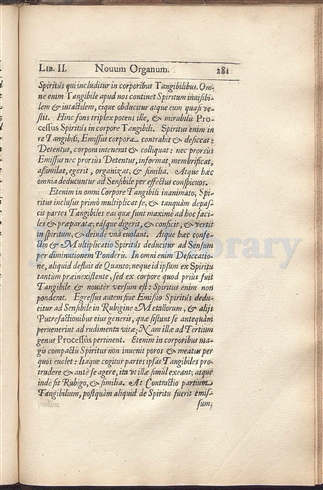 LIB. II. Nouum Organum. 281
Spiritûs qui includitur in corporibus Tangibilibus. Om-
ne enim Tangibile apud nos continet Spiritum inuisibi-
lem & intactilem, eique obducitur atque eum quasi ve-
stit. Hinc fons triplex potens ille, & mirabilis Pro-
cessus Spiritûs in corpore Tangibili. Spiritus enim in
re Tangibili, Emissus corpora contrahit & desiccat:
Detentus, corpora intenerat & colliquat: nec prorsùs
Emissus nec prorsùs Detentus, informat, membrificat,
assimilat, egerit, organizat, & similia. Atque hæc
omnia deducuntur ad Sensibile per effectus conspicuos.
Etenim in omni Corpore Tangibili inanimato, Spi-
ritus inclusus primò multiplicat se, & tanquàm depas-
cit partes Tangibiles eas quæ sunt maximè ad hoc faci-
les & præparatæ; easque digerit, & conficit, & vertit
in spiritum, & deindè vnà euolant. Atque hæc confe-
ctio & Multiplicatio Spiritûs deducitur ad Sensum
per diminutionem Ponderis. In omni enim Desiccatio-
ne, aliquid defluit de Quanto; neque id ipsum ex Spiritu
tantùm præinexistente, sed ex corpore quod priùs fuit
Tangibile & nouitèr versum est: Spiritus enim non
ponderat. Egressus autem siue Emissio Spiritûs dedu-
citur ad Sensibile in Rubigine Metallorum, & alijs
Putrefactionibus eius generis, quæ sistunt se antequàm
peruenerint ad rudimenta vitæ; Nam illæ ad Tertium
genus Processûs pertinent. Etenim in corporibus ma-
gis compactis Spiritus non inuenit poros & meatus per
quos euolet: Itaque cogitur partes ipsas Tangibiles pro-
trudere & antè se agere, ita vt illæ simul exeant; atque
indè fit Rubigo, & similia. At Contractio partium
Tangibilium, postquàm aliquid de Spiritu fuerit emis-
sum;
Library